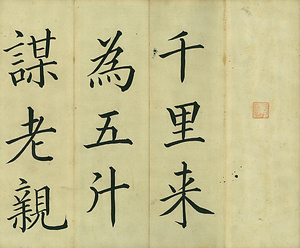 千里来
為五斗
謀老親